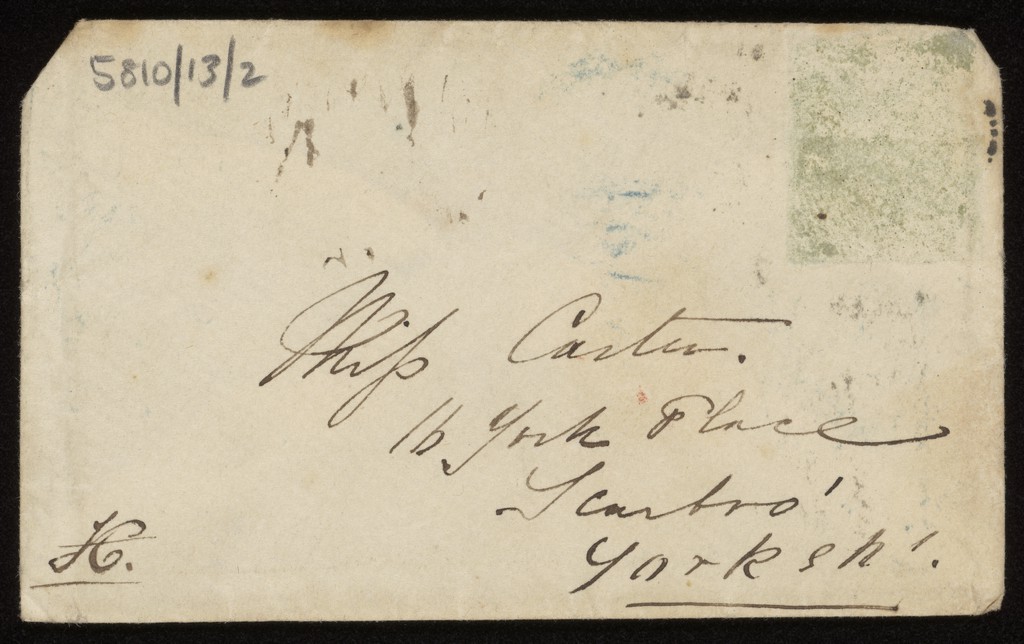 5810/13/2
Miss Carter.
16 York Place
Scarbro'
Yorksh'.
H.